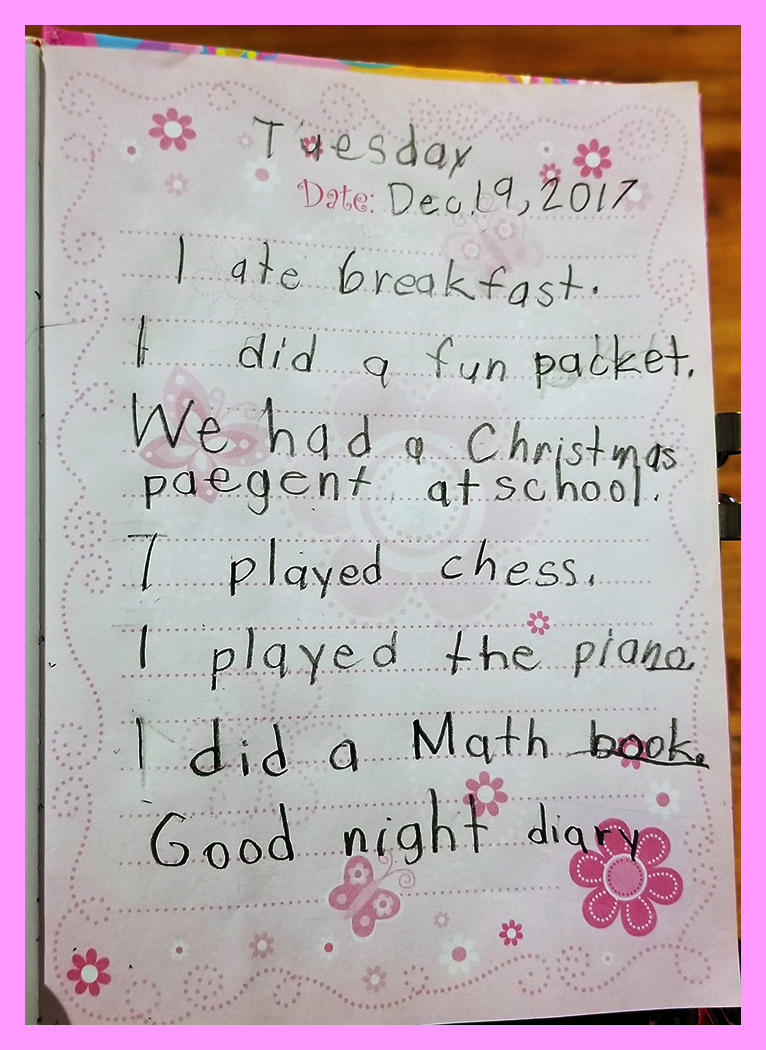 Tuesday
Date: Dec.19, 2017
I ate breakfast.
I did a fun packet.
We had a Christmas
paegent at school.
I played chess.
I played the piano.
I did a Math book.
Good night diary